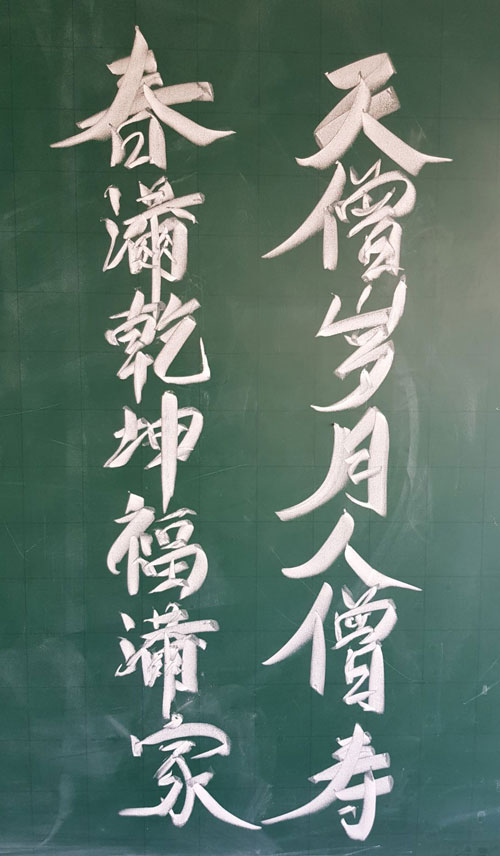 天僧岁月人僧寿
春满乾坤福满家